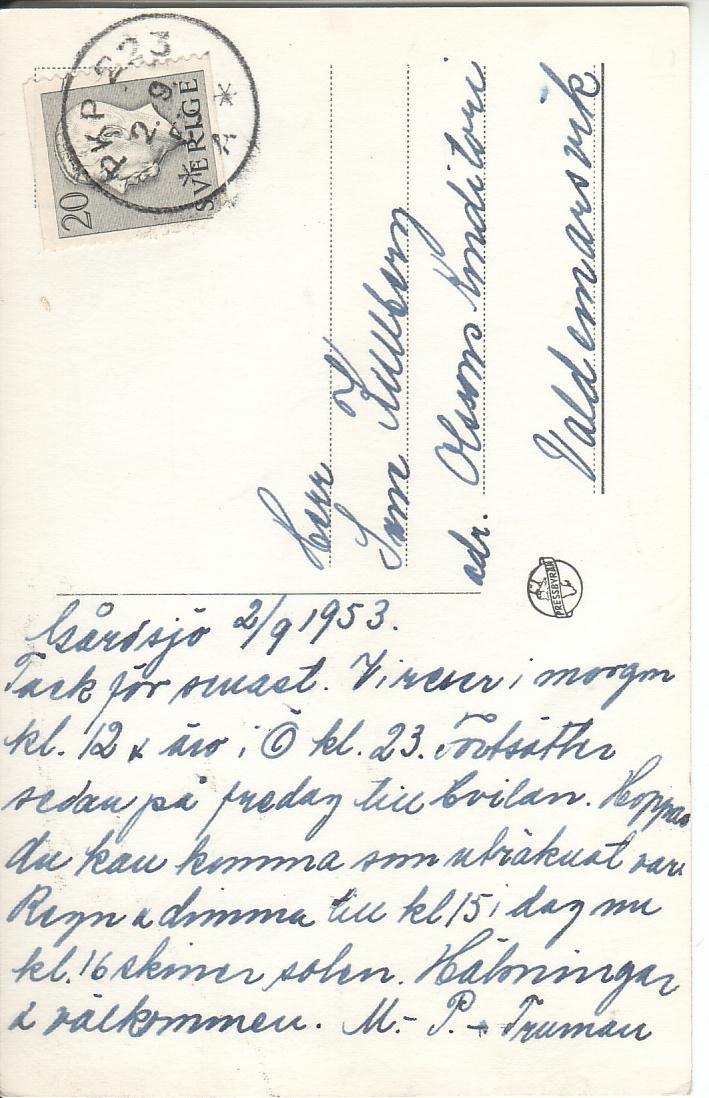 Gårdsjö 2/9 1953.
Tack för senast. Vi reser i morgon
kl. 12 & äro i Ö kl. 23. Fortsätter
sedan på fredag till Hvilan. Hoppas
du kan komma som uträknat var.
Regn & dimma till kl 15 i dag nu
kl. 16 skiner solen. Hälsningar
& välkommen. M.- P. - Truman
Herr
Sven Kullberg
adr. Olssons Konditori
Valdemarsvik
PRESSBYRÅN
20
SVERIGE
PKP 223
2. 9.